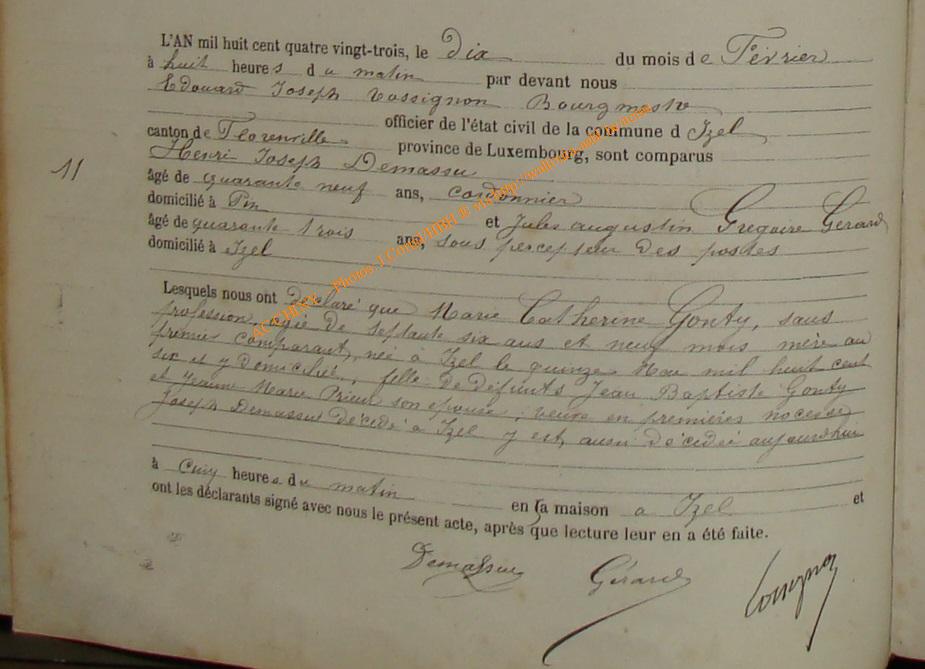 L'AN mil huit cent quatre vingt-trois, le Dix du mois de Février
à huit heures du matin par devant nous
Edouard Joseph Rossignon Bourgmestre
officier de l'état civil de la commune d Izel
canton de Florenville province de Luxembourg, sont comparus
Henri Joseph Demassu
11
âgé de quarante neuf ans, cordonnier
domicilié à Pin et Jules augustin Gregoire Gérard
âgé de quarante trois ans, sous percepteur des postes
domicilié à Izel
Lesquels nous ont déclaré que Marie Catherine Gonty, sans
profession, agée de septante six ans et neuf mois mère au
premier comparant, née à Izel le quinze Mai mil huit cent
six et y domiciliée, fille de défunts Jean Baptiste Gonty
et Jeanne Marie Prieur son épouse, veuve en premières noces de
Joseph Demassu décédé à Izel y est aussi décédée aujourd'hui
à Cinq heures du matin en sa maison a Izel et
ont les déclarants signé avec nous le présent acte, après que lecture leur en a été faite.
Demassu Gérard Rossignon